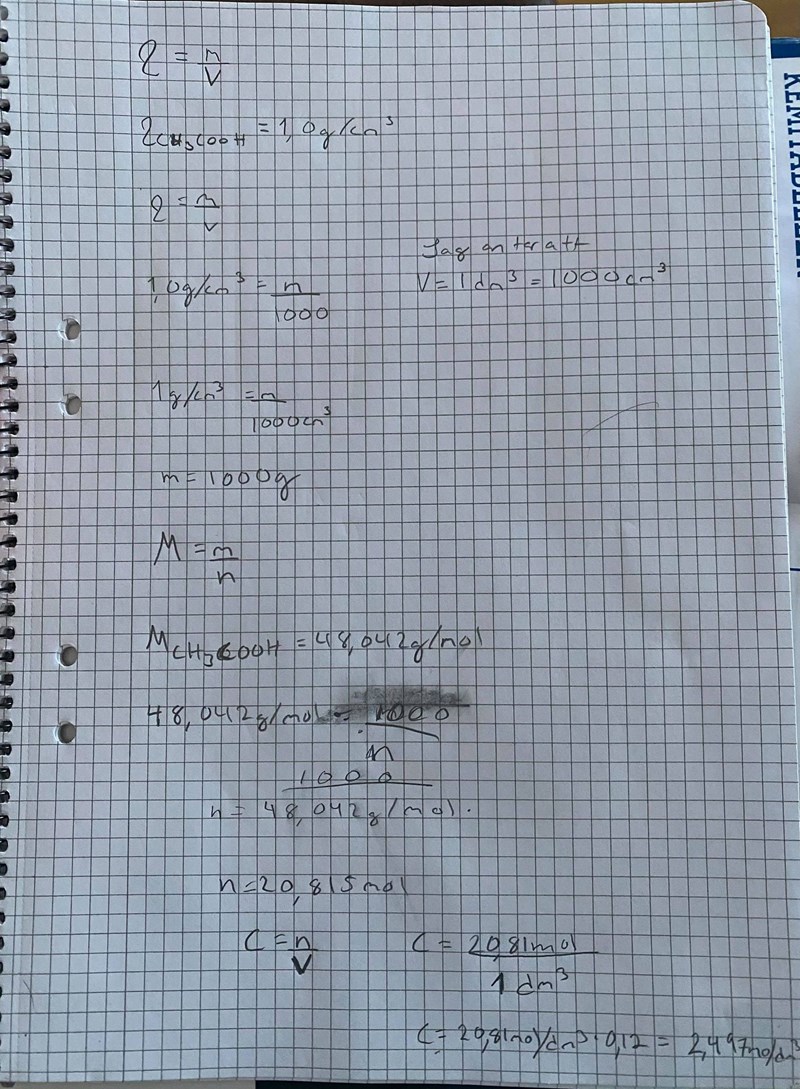 ϱ = m/V
ϱCH₃COOH = 1,0g/cm³
ϱ = m/V
Jag antar att
1,0g/cm³ = m/1000
V = 1 dm³ = 1000cm³
1g/cm³ = m/1000cm³
m = 1000g
M = m/n
MCH₃COOH = 48,042g/mol
48,042g/mol = 1000/n
n = 1000/48,042g/mol.
n = 20,815mol
C = n/V
C = 20,81mol/1 dm³
C = 20,81mol/dm³ · 0,12 = 2,497mol/dm³
KEMITABELLER